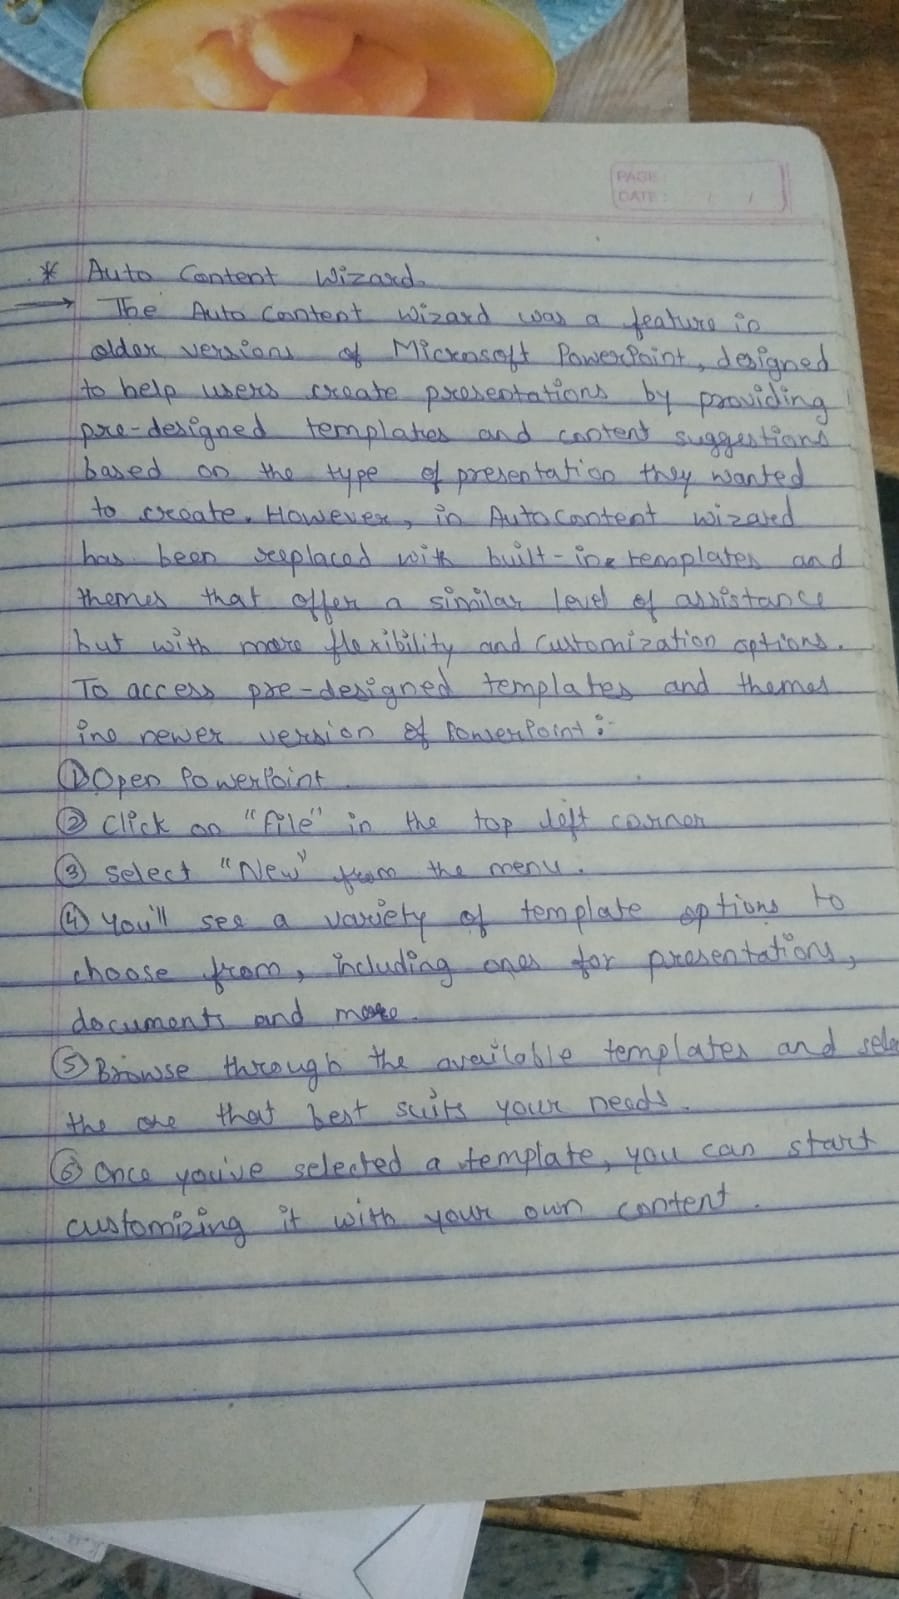 PAGE :
DATE : / /
* Auto Content Wizard.
→ The AutoContent wizard was a feature in
older versions of Microsoft PowerPoint, designed
to help users create presentations by providing
pre-designed templates and content suggestions
based on the type of presentation they wanted
to create. However, in AutoContent wizared
has been reeplaced with built-in templates and
themes that offer a similar level of assistance
but with more flexibility and customization options.
To access pre-designed templates and themes
in newer version of PowerPoint :-
① Open PowerPoint
② Click on "File" in the top left corner
③ Select "New" from the menu.
④ You'll see a variety of template options to
choose from, including ones for presentations,
documents and more.
⑤ Browse through the available templates and sele
the one that best suits your needs.
⑥ Once you've selected a template, you can start
customizing it with your own content.